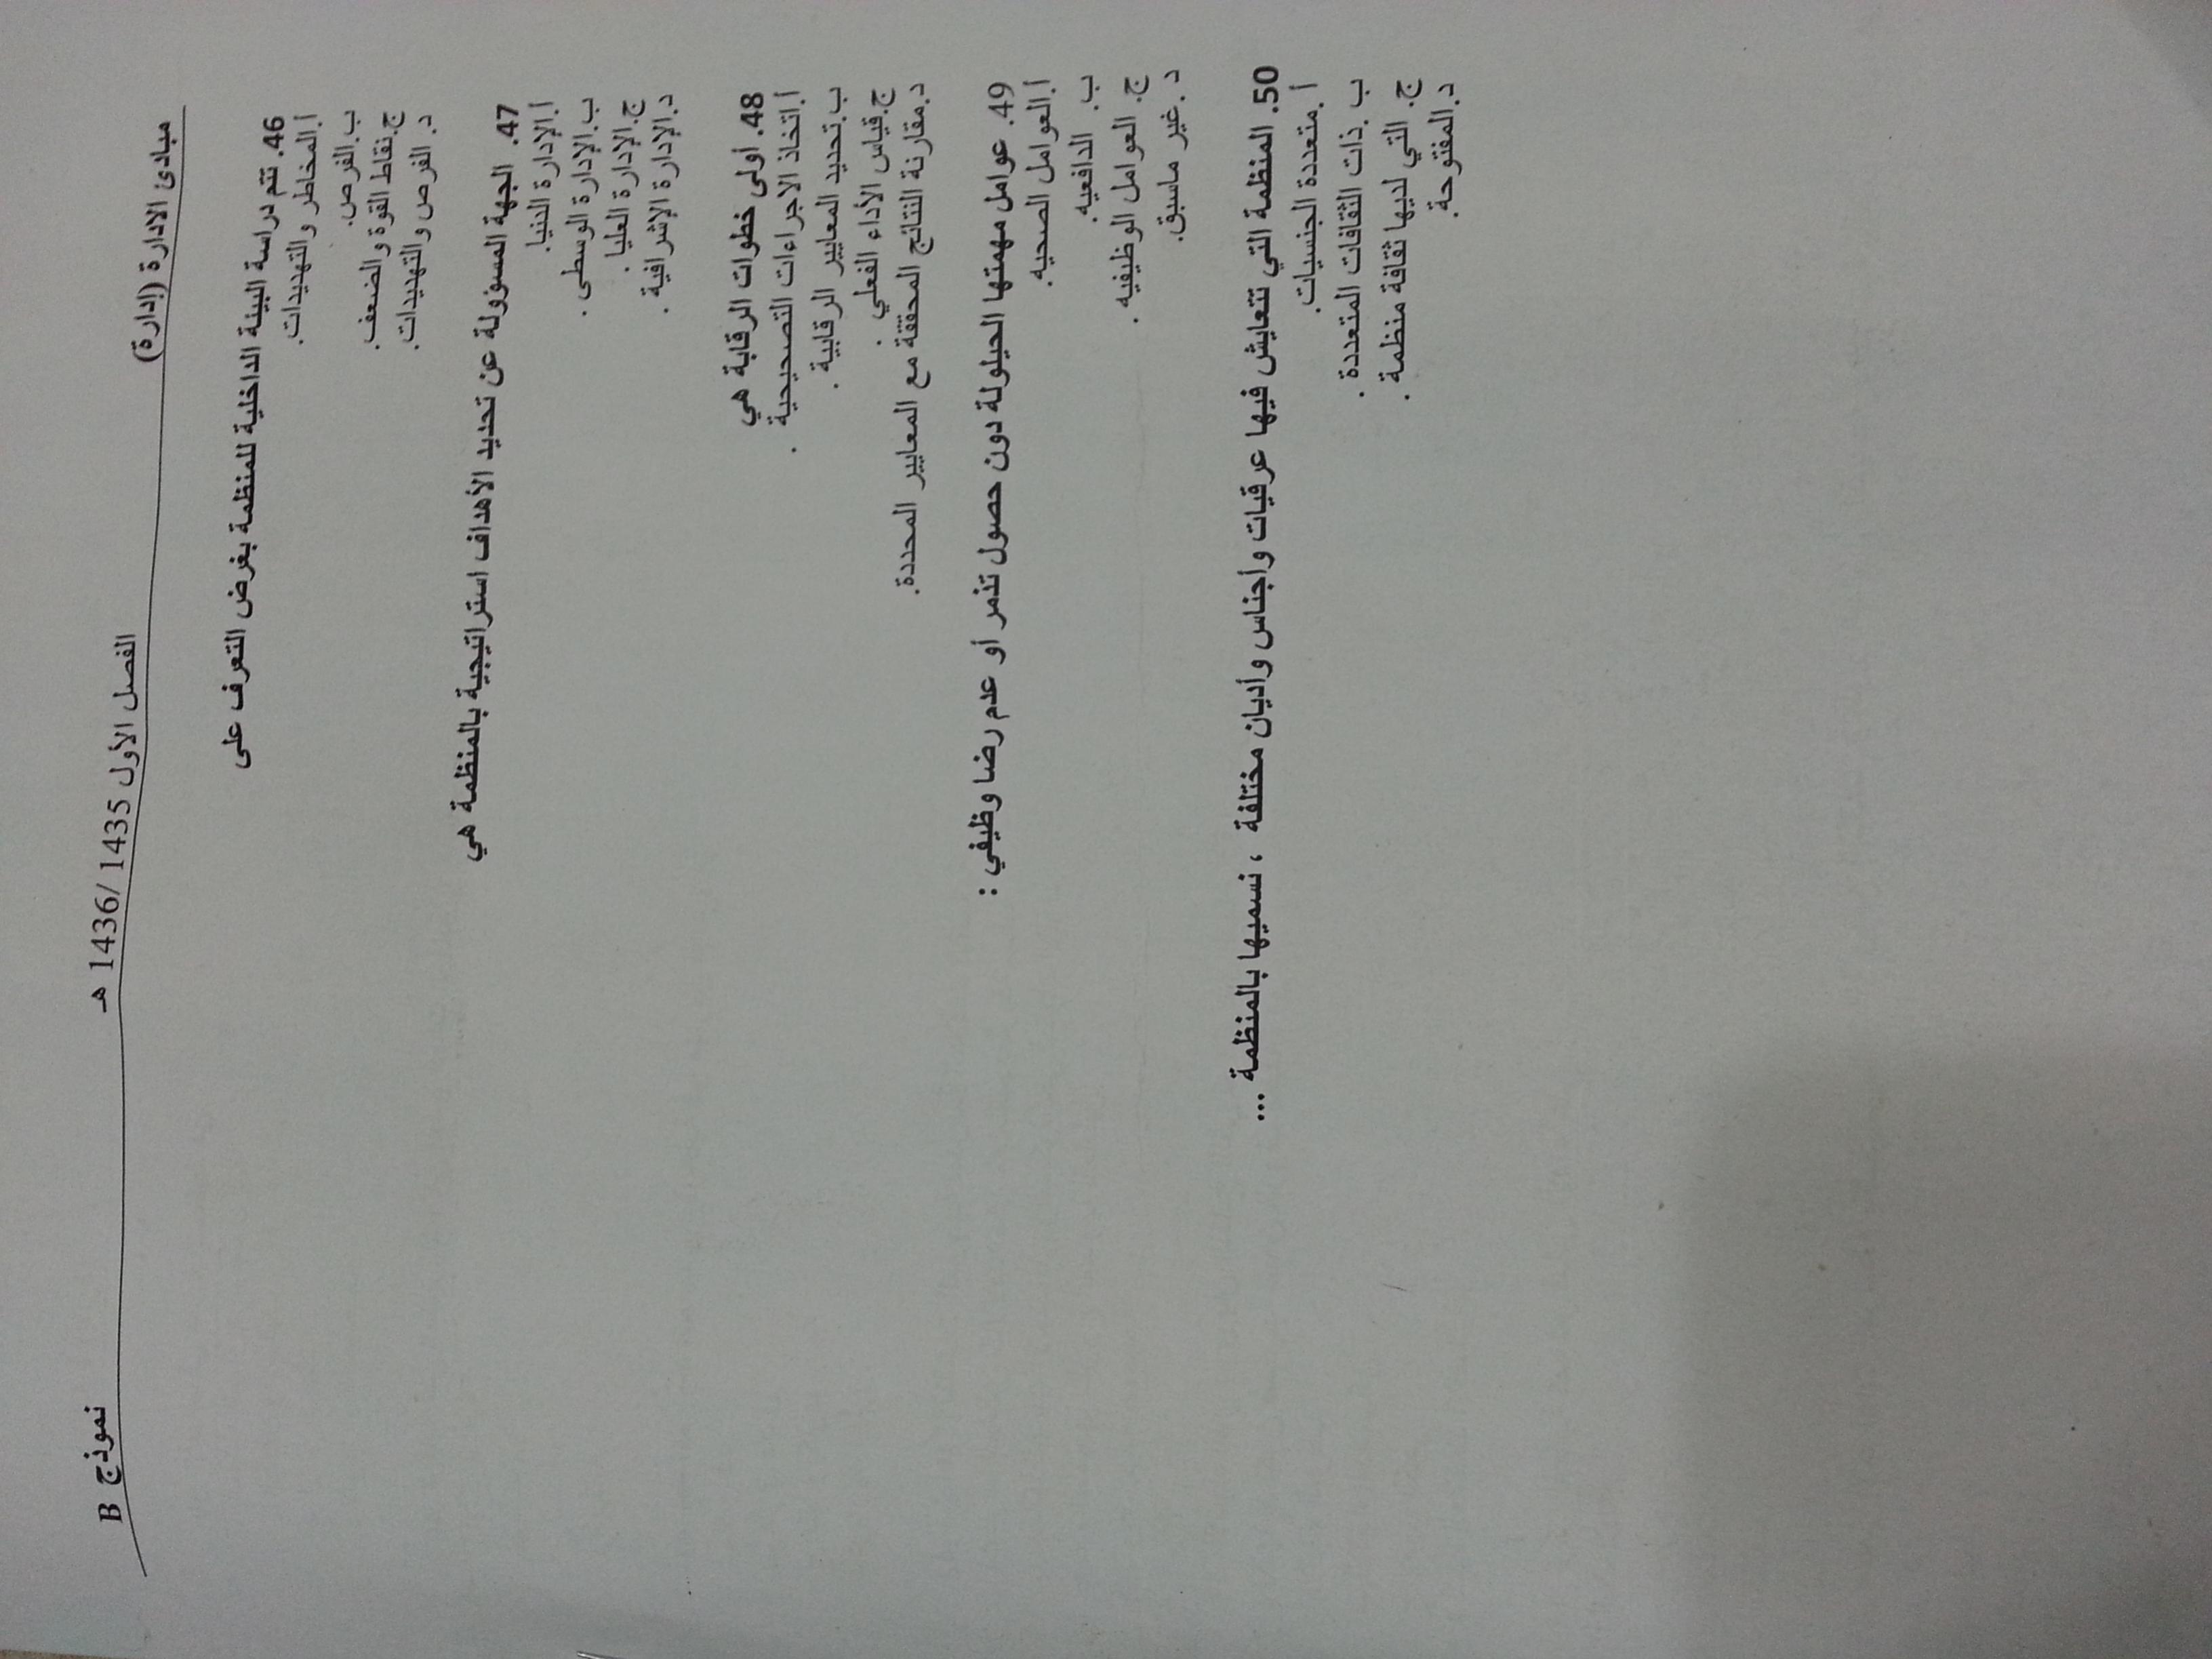 مبادئ الادارة (إدارة)
الفصل الأول 1435 /1436 هـ
نموذج B
46. تتم دراسة البيئة الداخلية للمنظمة بغرض التعرف على
أ.المخاطر والتهديدات.
ب.الفرص.
ج.نقاط القوة والضعف.
د. الفرص والتهديدات.
47. الجهة المسؤولة عن تحديد الأهداف استراتيجية بالمنظمة هي
أ.الإدارة الدنيا.
ب.الإدارة الوسطى .
ج.الإدارة العليا .
د.الإدارة الإشرافية .
48. أولى خطوات الرقابة هي
أ.اتخاذ الاجراءات التصحيحية .
ب.تحديد المعايير الرقابية .
ج.قياس الأداء الفعلي .
د.مقارنة النتائج المحققة مع المعايير المحددة.
49. عوامل مهمتها الحيلولة دون حصول تذمر أو عدم رضا وظيفي :
أ.العوامل الصحيه.
ب. الدافعيه.
ج. العوامل الوظيفيه .
د .غير ماسبق.
50. المنظمة التي تتعايش فيها عرقيات وأجناس وأديان مختلفة ، نسميها بالمنظمة ...
أ .متعددة الجنسيات.
ب .ذات الثقافات المتعددة .
ج. التي لديها ثقافة منظمة .
د.المفتوحة.